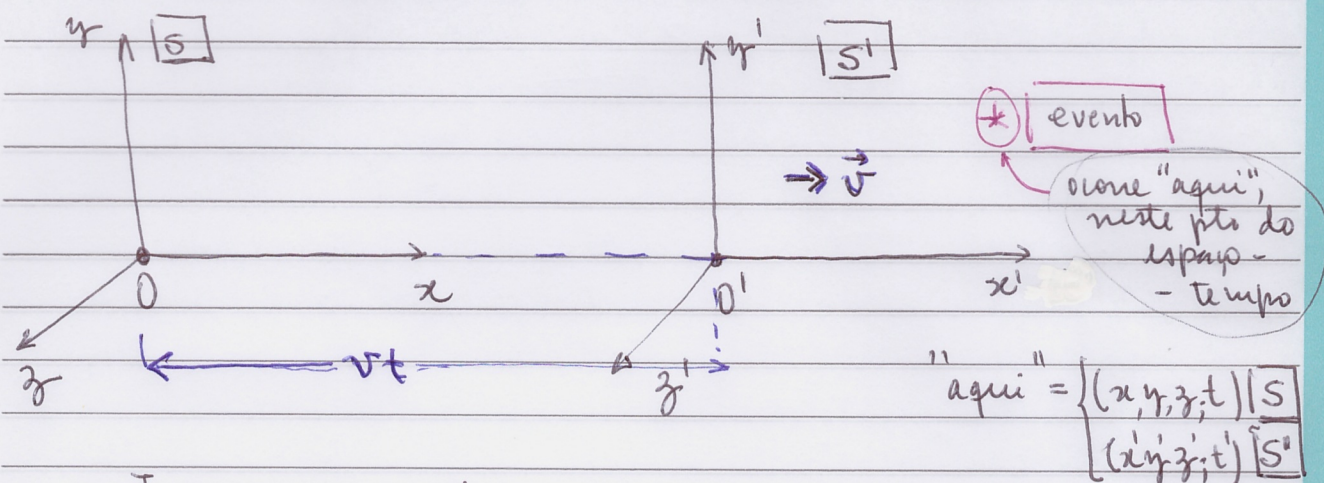 y S
y' S'
* evento
→ v⃗
ocorre "aqui",
neste pto do
espaço-
- tempo
O x O' x'
vt
z z'
"aqui" = { (x,y,z;t) S
(x'y'z';t') S'